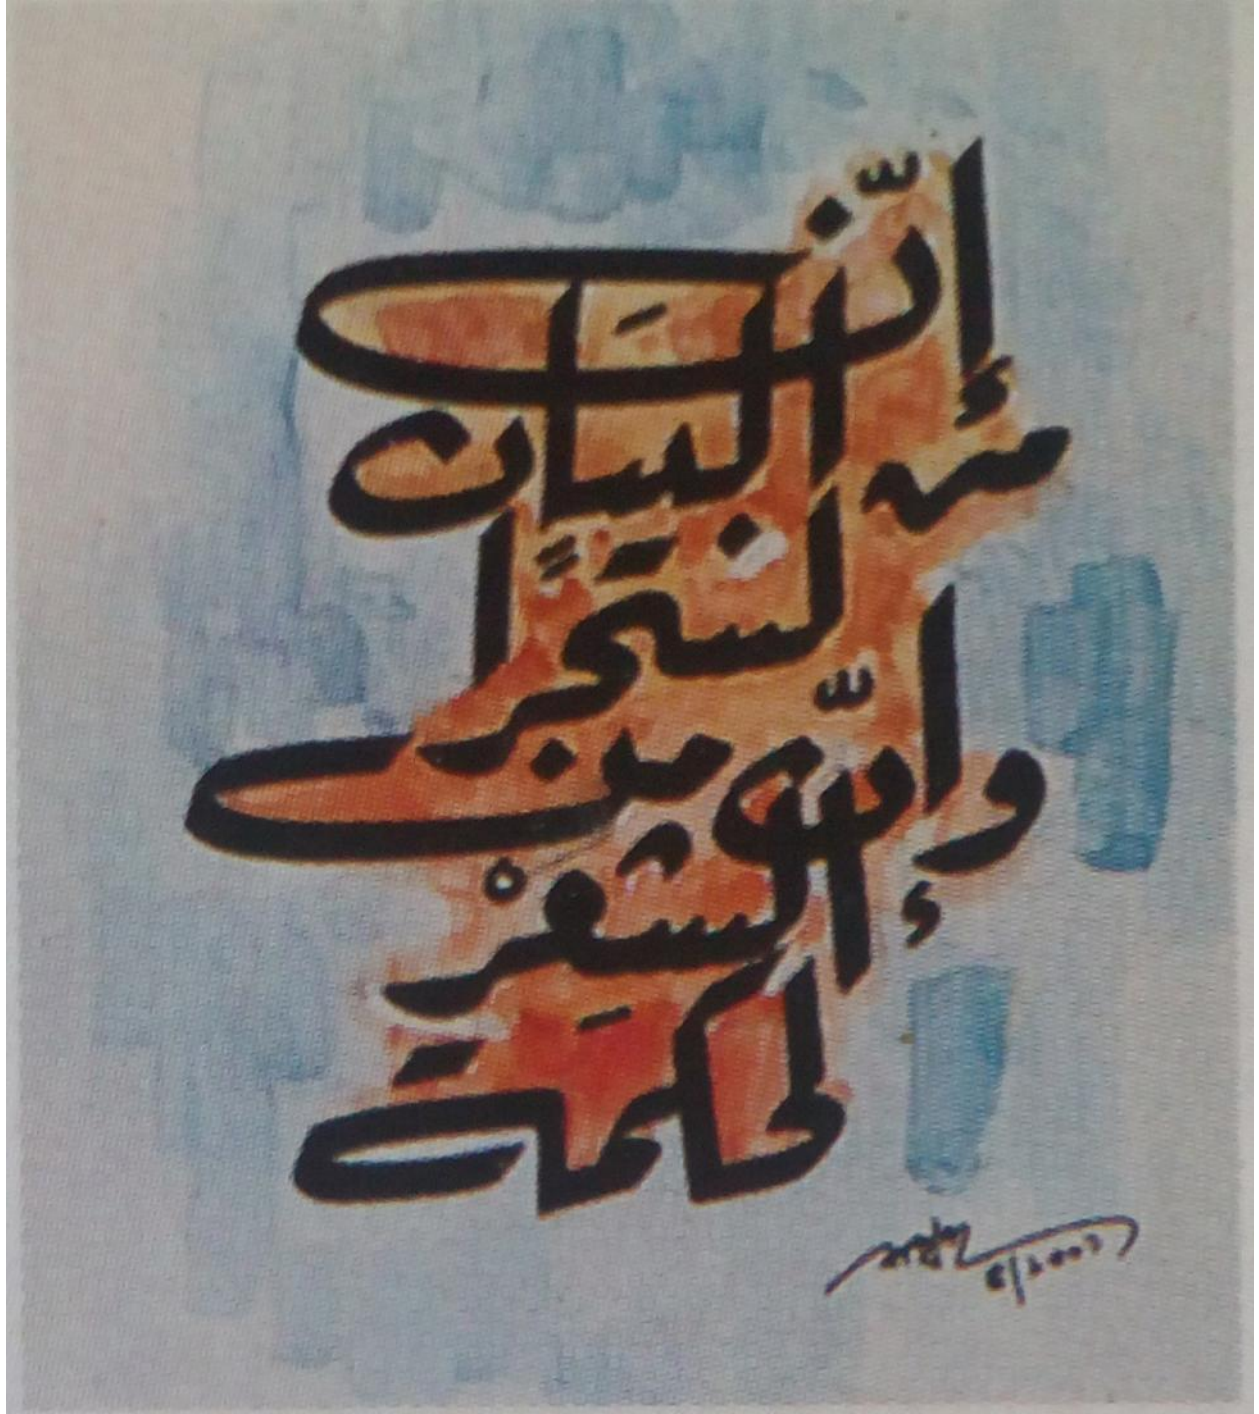 إنّ
من البَيان
لسحرًا
وإنّ من
الشعْر
لحكمَة